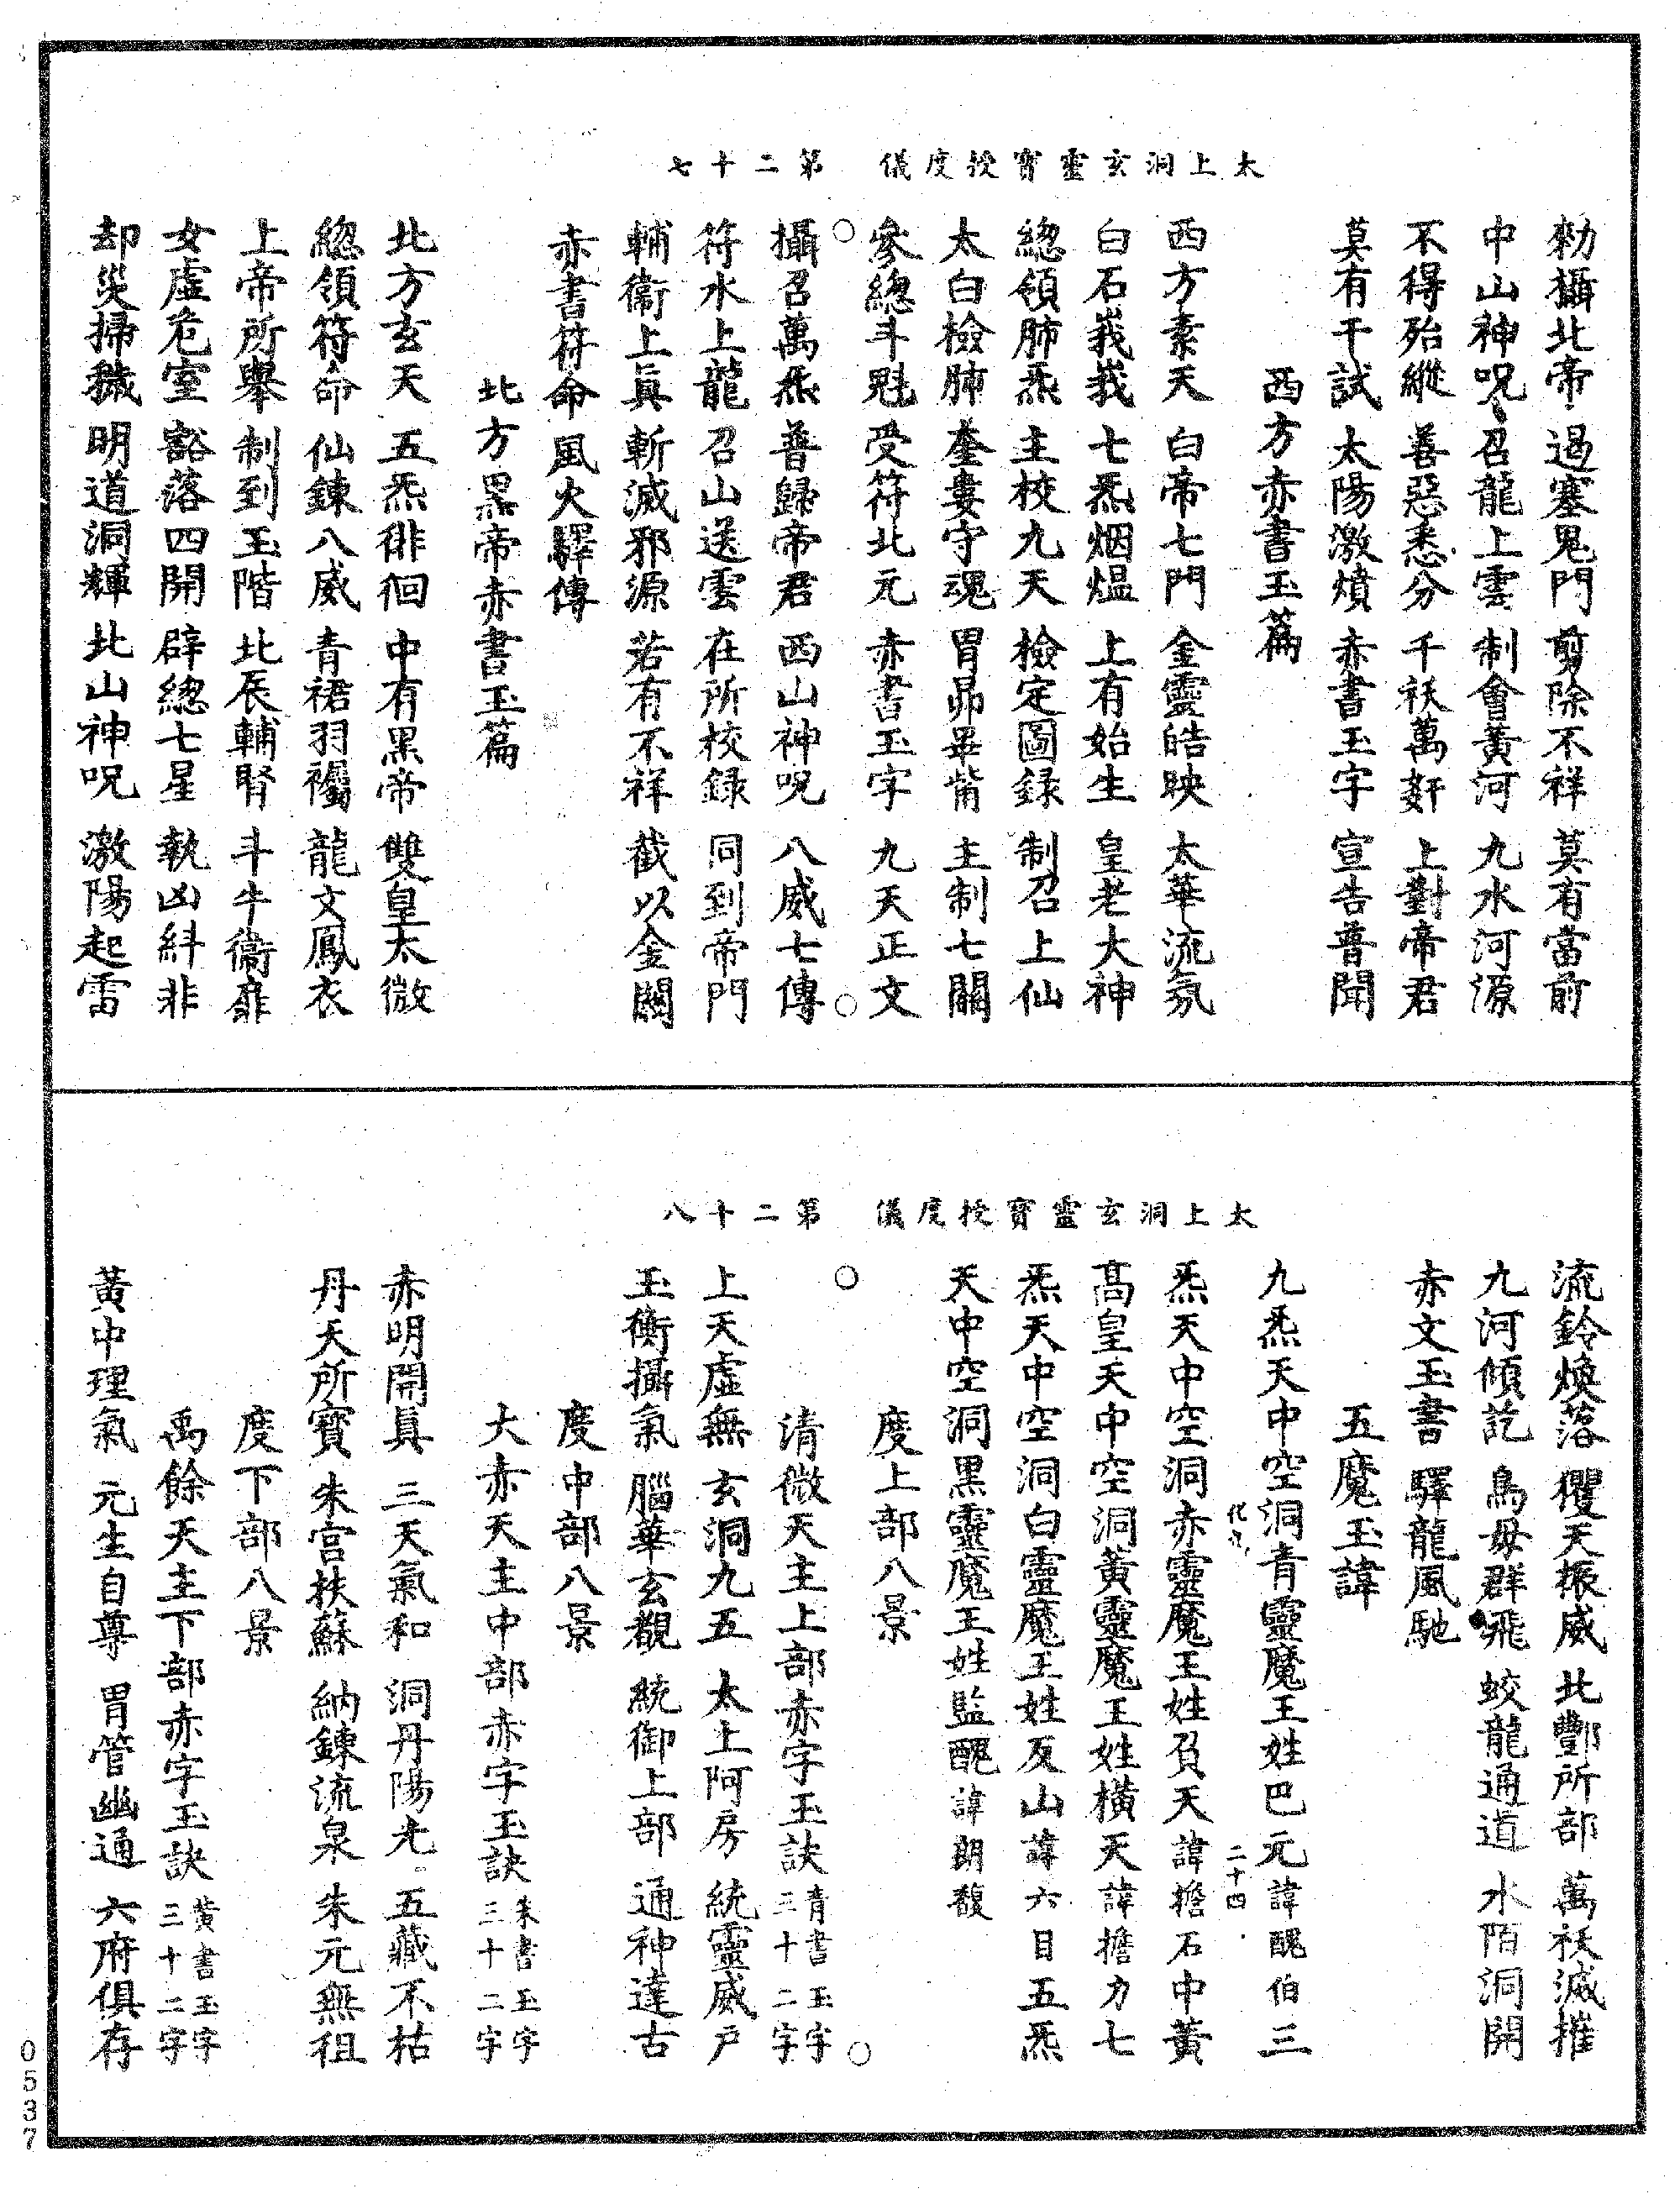 太上洞玄靈寶授度儀　第二十七
勑攝北帝　遏塞鬼門　剪除不祥　莫有當前
中山神呪　召龍上雲　制會黃河　九水河源
不得殆縱　善惡悉分　千祅萬奸　上對帝君
莫有干試　太陽激憤　赤書玉字　宣告普聞
西方赤書玉篇
西方素天　白帝七門　金靈皓映　太華流氛
白石峩峩　七炁烟熅　上有始生　皇老大神
緫領肺炁　主校九天　檢定圖録　制召上仙
太白檢肺　奎婁守魂　胃昴畢觜　主制七關
參緫斗魁　受符北元　赤書玉字　九天正文
攝召萬炁　普歸帝君　西山神呪　八威七傳
符水上龍　召山送雲　在所校録　同到帝門
輔衞上眞　斬滅邪源　若有不祥　截以金關
赤書符命　風火驛傳
北方黑帝赤書玉篇
北方玄天　五炁徘徊　中有黑帝　雙皇太微
緫領符命　仙錬八威　青裙羽襡　龍文鳳衣
上帝所舉　制到玉階　北辰輔腎　斗牛衞扉
女虛危室　豁落四開　辟緫七星　執凶糾非
却災掃穢　明道洞輝　北山神呪　激陽起雷
太上洞玄靈寶授度儀　第二十八
流鈴煥落　玃天振威　北酆所部　萬祅滅摧
九河傾訖　鳥母群飛　蛟龍通道　水陌洞開
赤文玉書　驛龍風馳
五魔玉諱
九炁天中空洞青靈魔王姓巴元諱醜伯三
二十四
炁天中空洞赤靈魔王姓負天諱擔石中黃
高皇天中空洞黃靈魔王姓橫天諱擔力七
炁天中空洞白靈魔王姓反山諱六目五炁
天中空洞黑靈魔王姓監醜諱朗馥
度上部八景
清微天主上部赤字玉訣青書玉字三十二字
上天虛無　玄洞九五　太上阿房　統靈威戶
玉衡攝氣　腦華玄觀　統御上部　通神達古
度中部八景
大赤天主中部赤字玉訣朱書玉字三十二字
赤明開眞　三天氣和　洞丹陽光　五藏不枯
丹天所寳　朱宮扶蘇　納錬流泉　朱元無祖
度下部八景
禹餘天主下部赤字玉訣黃書玉字三十二字
黃中理氣　元生自尊　胃管幽通　六府俱存
0537